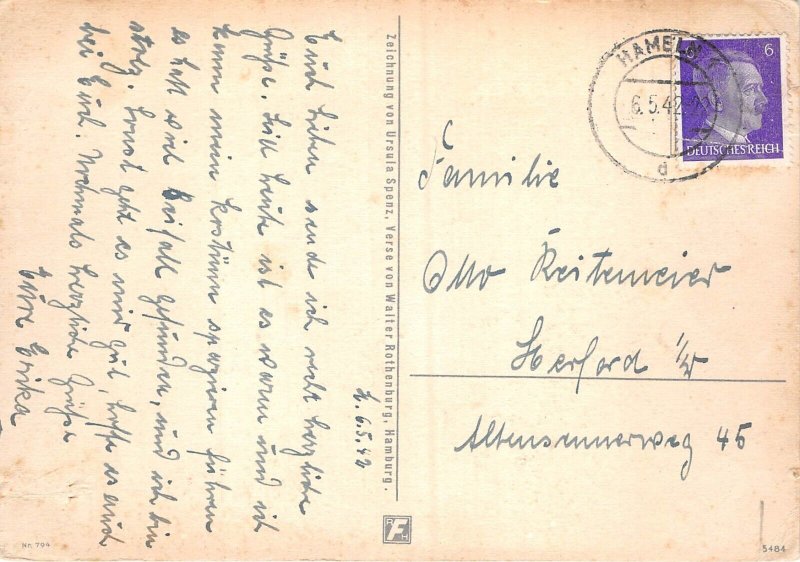 H. 6.5.42
Euch Lieben sende ich recht herzliche
Grüße. Lilli heute ist es warm und ich
kann mein Kostüm spazieren führen
es hat viel Beifall gefunden, und ich bin
stolz. Sonst geht es mir gut, hoffe es auch
bei Euch. Nochmals herzliche Grüße
Eure Erika
Zeichnung von Ursula Spenz, Verse von Walter Rothenburg, Hamburg.
HAMELN
6.5.42
d
6
DEUTSCHES REICH
Familie
Otto Reitemeier
Herford i/W
Altensennerweg 45
Nr. 794
5484